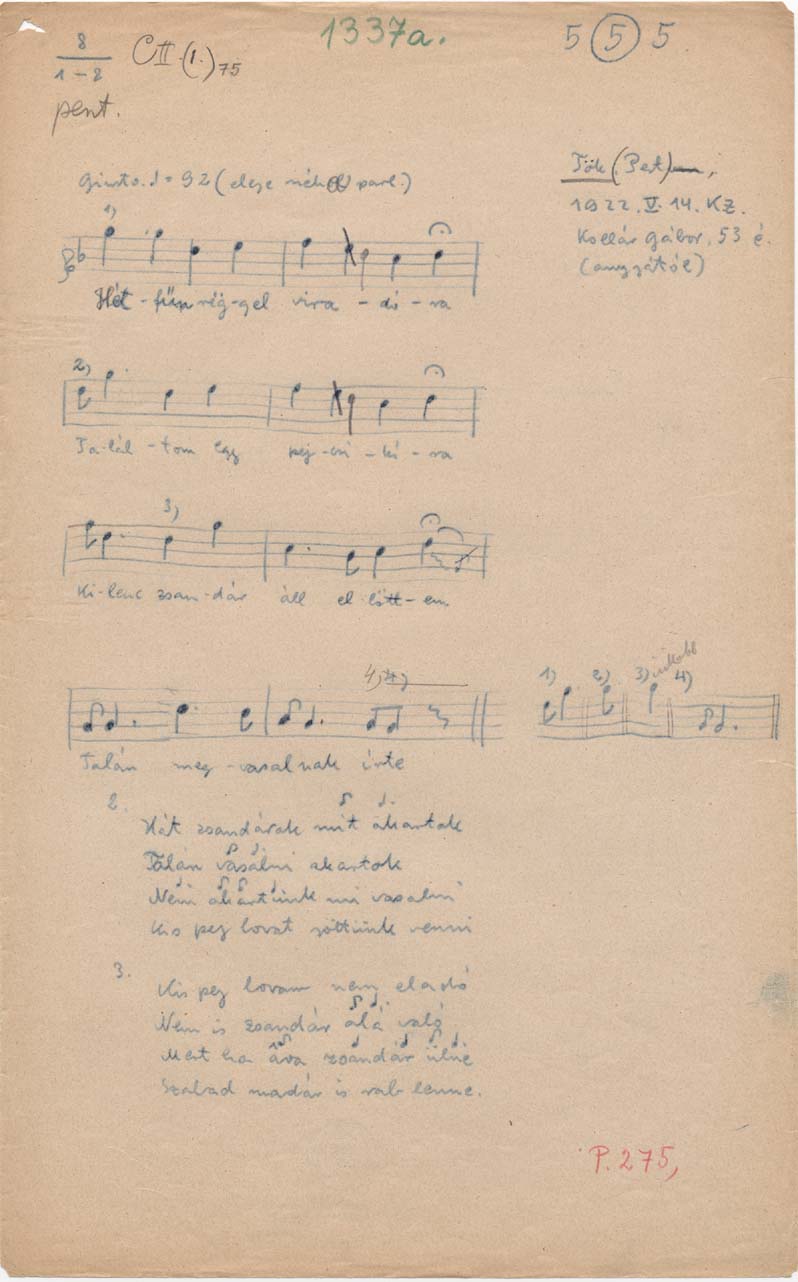 8
1-2
C II. (1.) 75
1337a.
5 5 5
pent.
Tök (Pest)
1922. V. 14. KZ.
Kollár Gábor, 53 é.
(anyjától)
Giusto. ♩= 92 (eleje parl.)
1)
Hét-fün rég-gel vira-dó-ra
2)
Ta-lál-tom egy pej csi-kó-ra
3)
Ki-lenc zsan-dár áll el-lőtt-em
4)
Talán meg-vasalnak írte
1) 2) 3) 4)
2.
Hát zsandárok mit akartok
Talán vasalni akartok
Nem akartunk mi vasalni
Kis pej lovat jöttünk venni
3.
Kis pej lovam nem eladó
Nem is zsandár alá való
Mert ha zsandár ülne
Szabad madár is rab lenne.
P. 275,